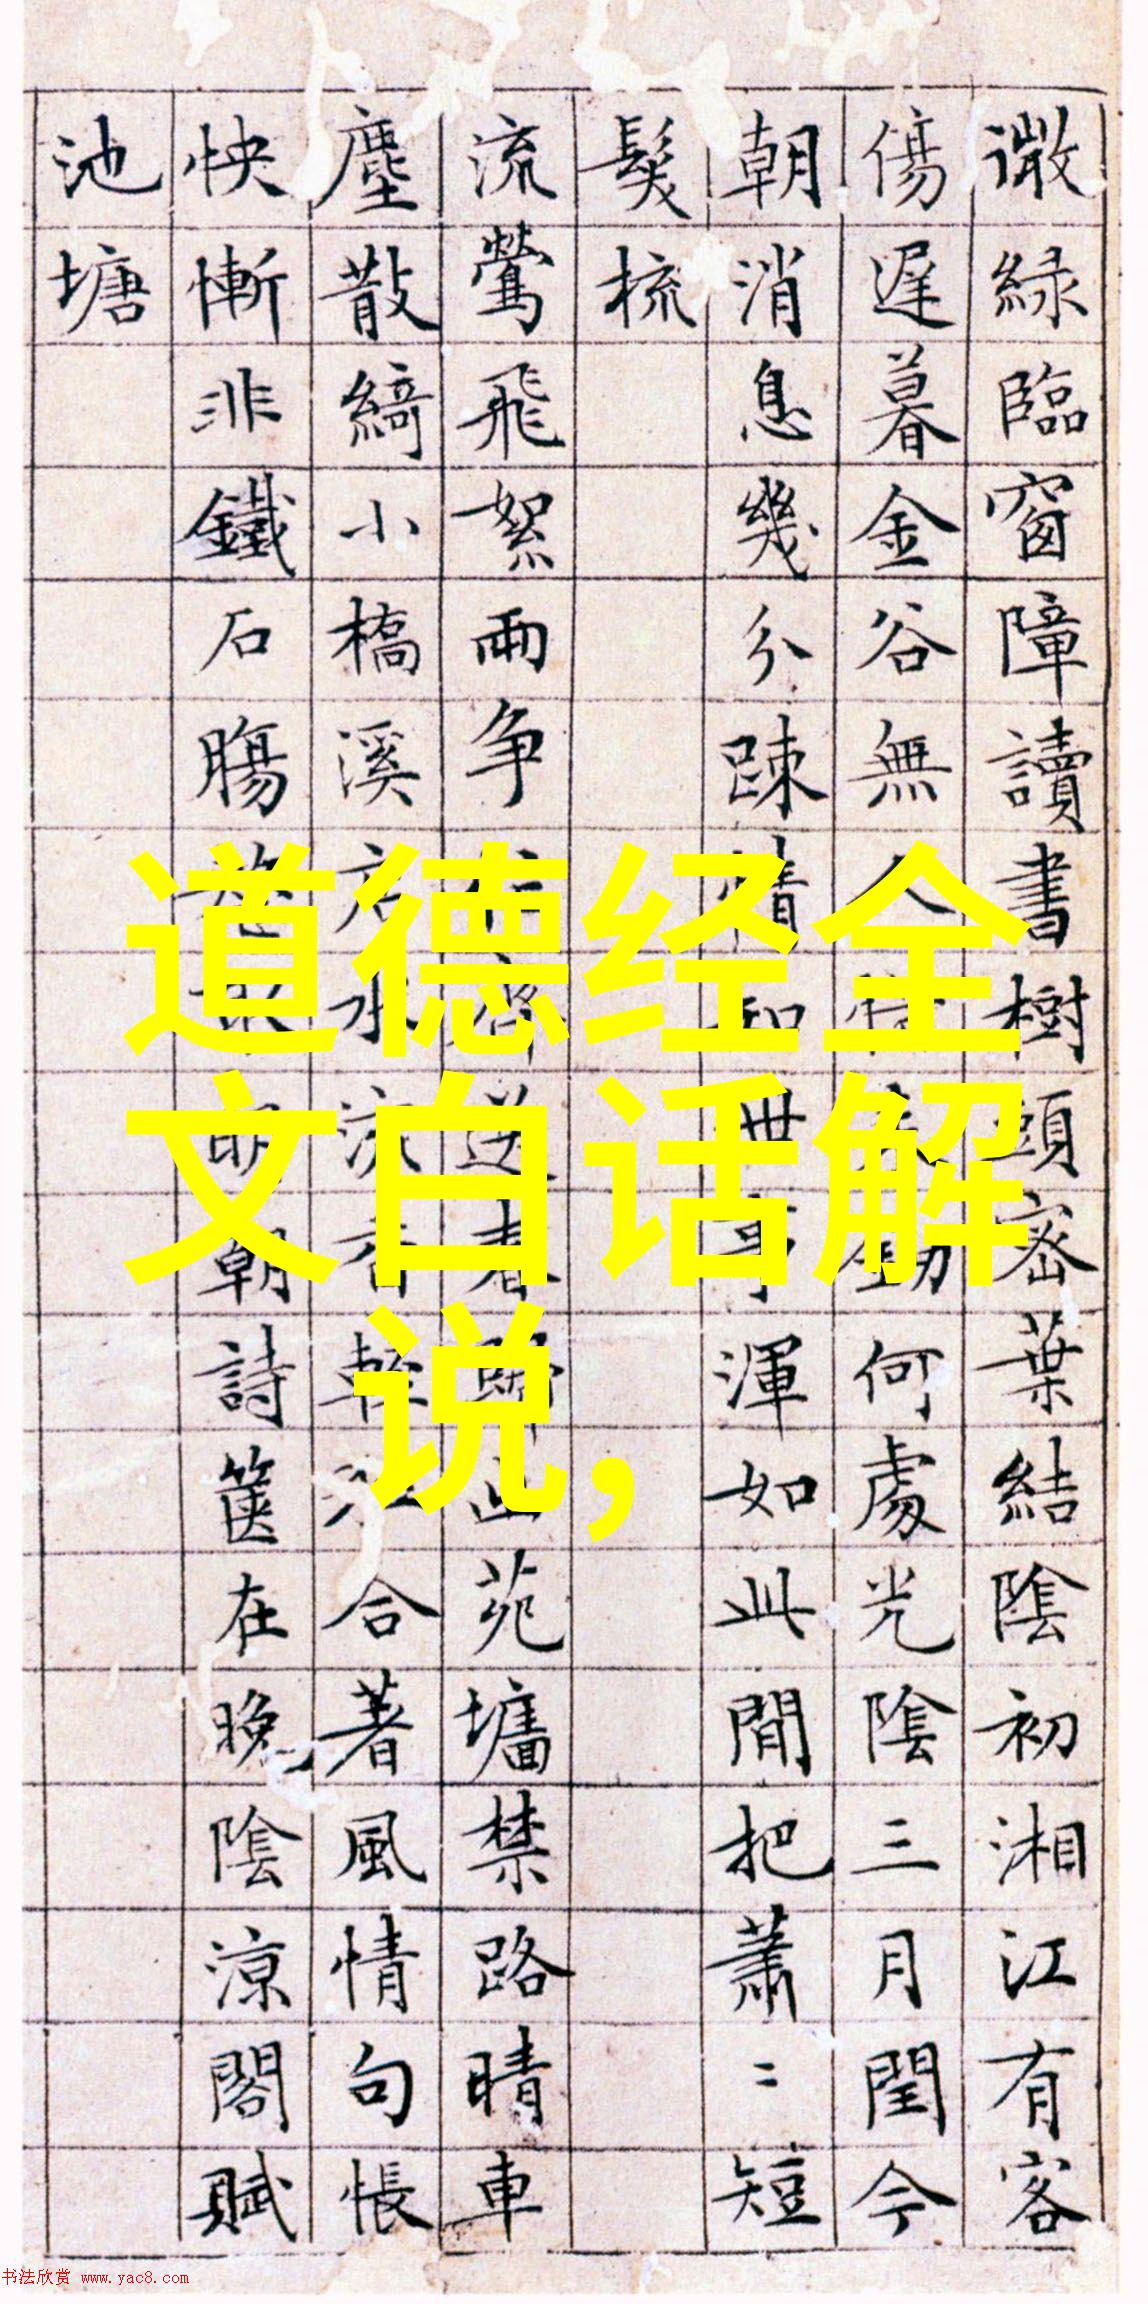 微綠臨窗障讀書樹頭密葉結陰初湘江有客
傷遲暮金谷無人何處光陰三月閏今
朝消息幾分踈情知世事渾如此間把蕭〻短
鬓梳
流鶯飛絮兩争苑墻禁路晴車
塵散綺小橋溪水流香合著風情句悵
怏慚非鐵石腸朝詩篋在晚陰涼閣賦
池塘
道德经全
文白话解
说,
书法欣赏 www.yac8.com